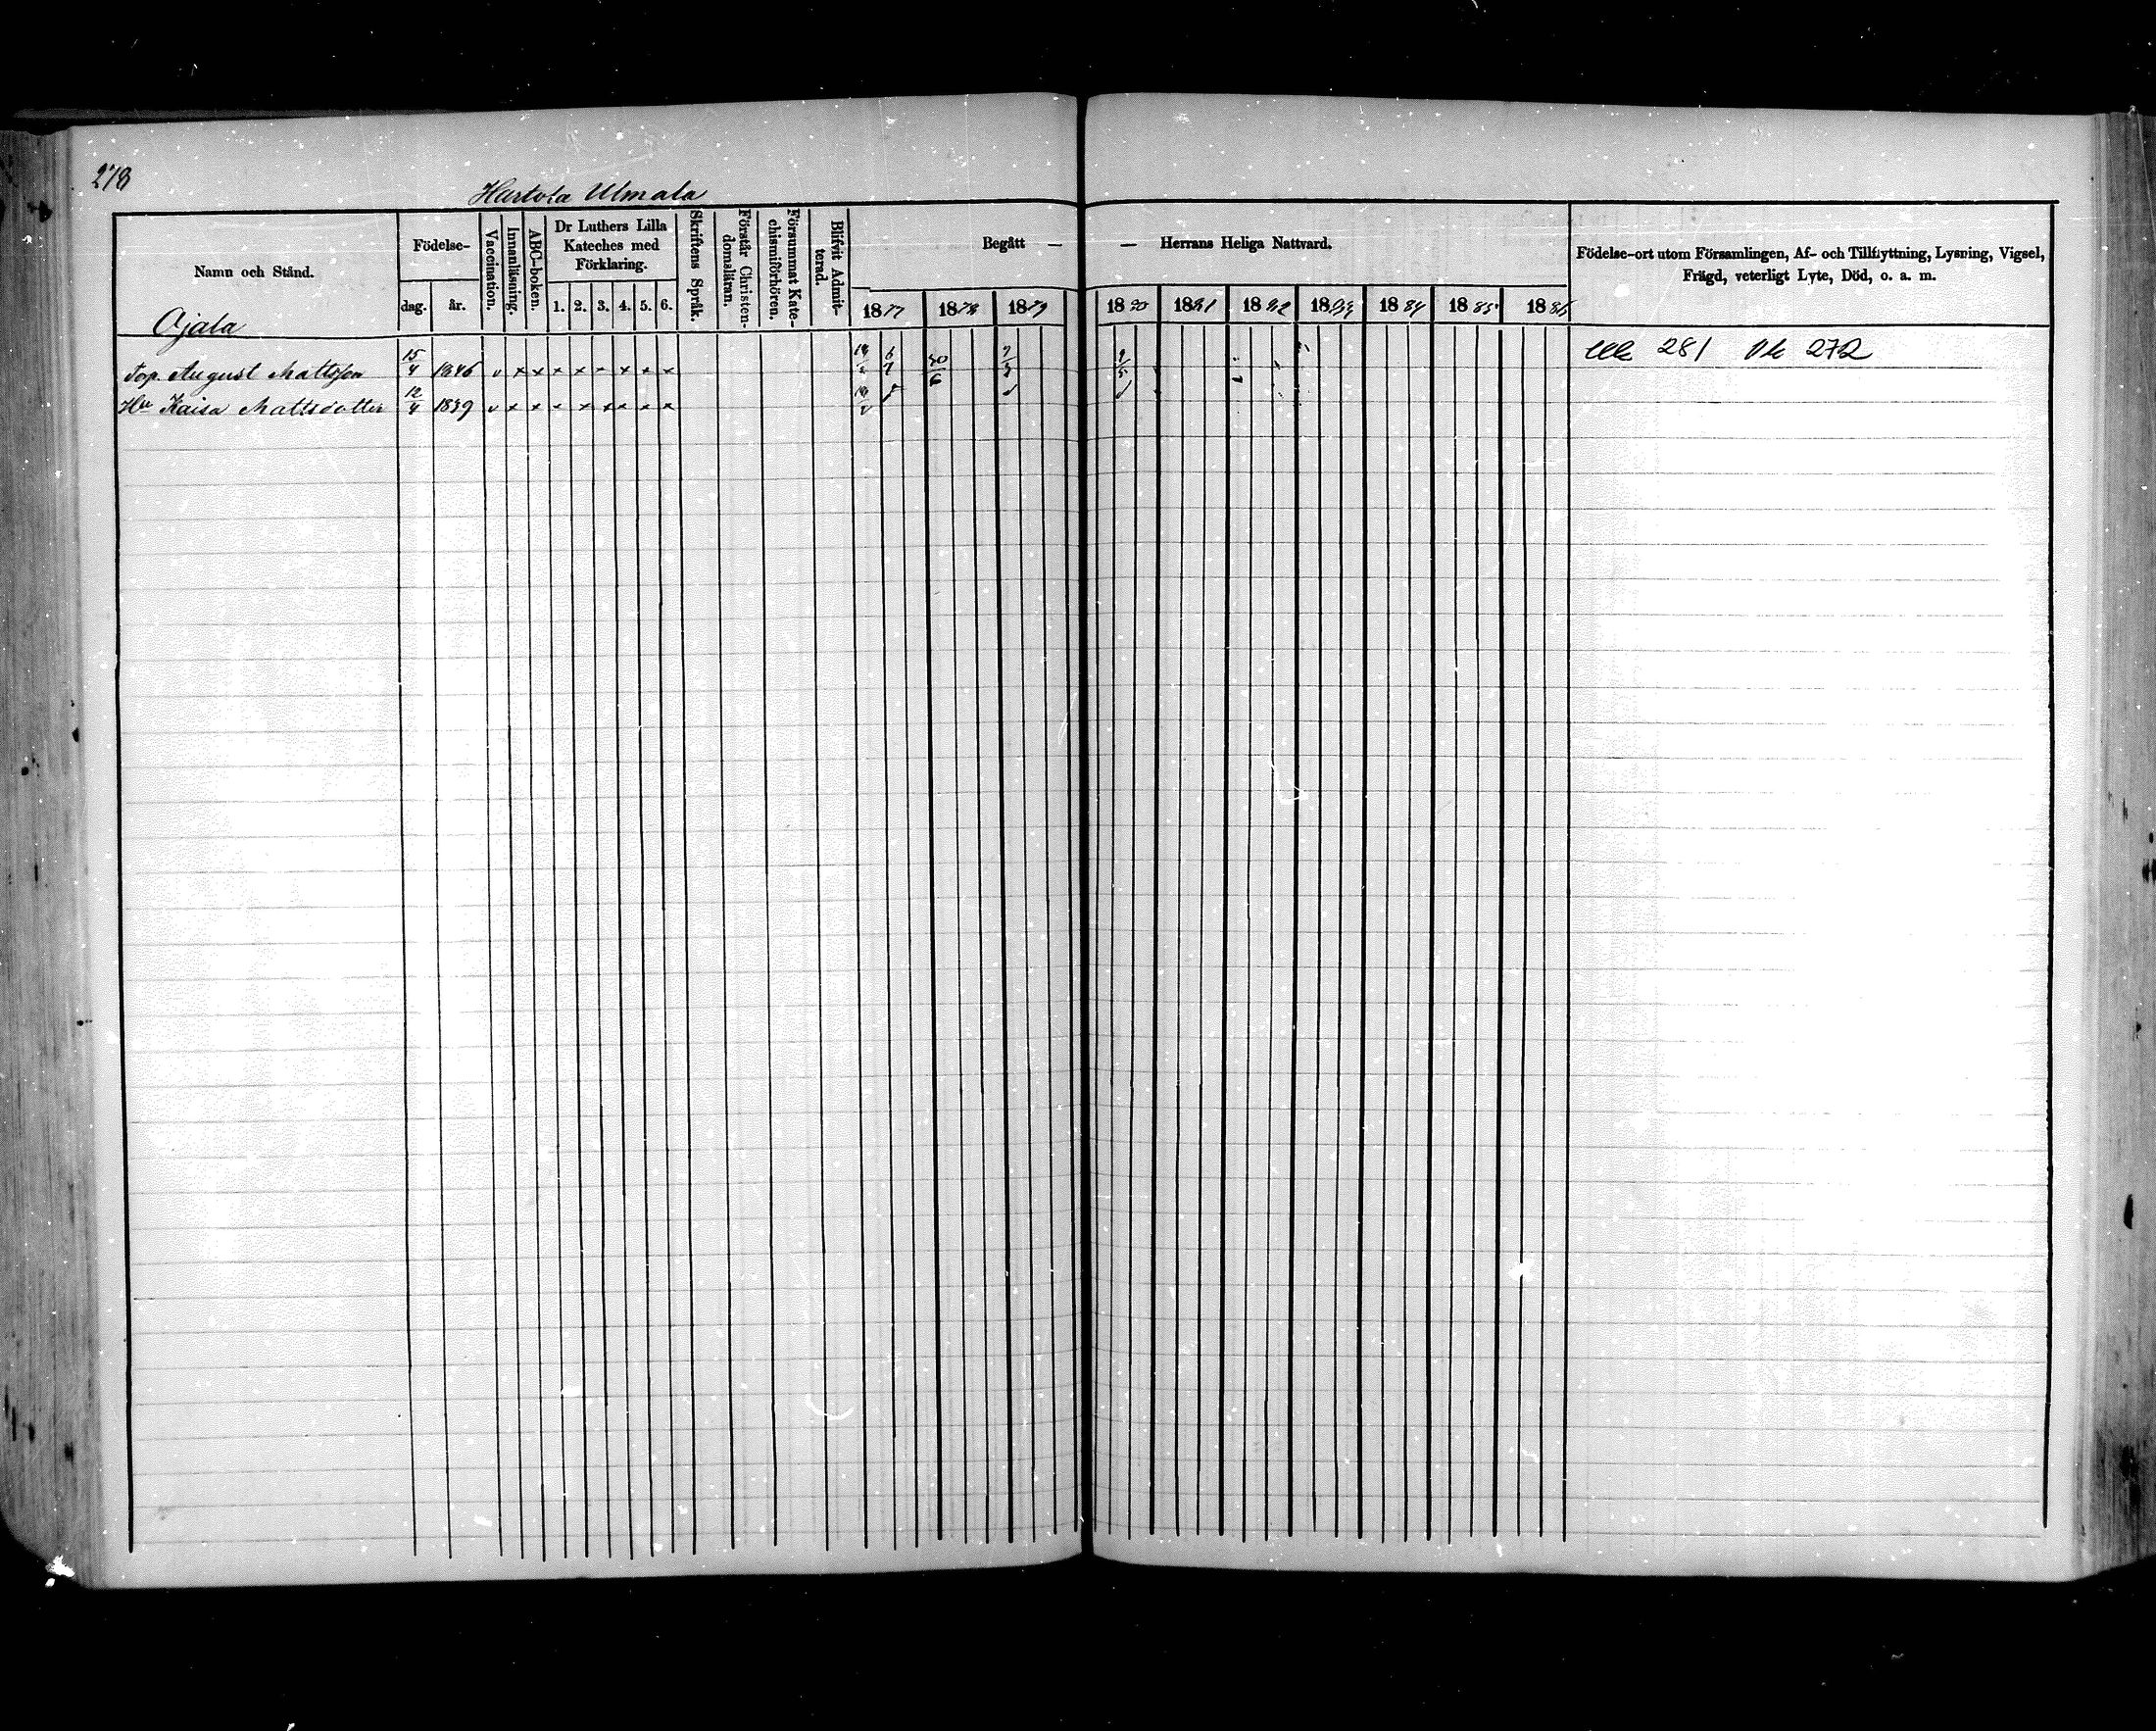 278
Hartola Ulmala
Namn och Stånd.
Födelse-
dag. år.
Vaccination.
Innanläsning.
ABC-boken.
Dr Luthers Lilla
Kateches med
Förklaring.
1. 2. 3. 4. 5. 6.
Skriftens Språk.
Förstår Christen-
domsläran.
Försummat Kate-
chismiförhören.
Blifvit Admit-
terad.
Begått — — Herrans Heliga Nattvard.
1877 1878 1879 1880 1881 1882 1883 1884 1885 1886
Födelse-ort utom Församlingen, Af- och Tillflyttning, Lysning, Vigsel,
Frägd, veterligt Lyte, Död, o. a. m.
Ojala
Torp. August Mattsson 15/4 1846 v x x x x x x x x 6/7 30/6 281 272
Hu Kaisa Mattsdotter 12/4 1839 v x x x x x x x x